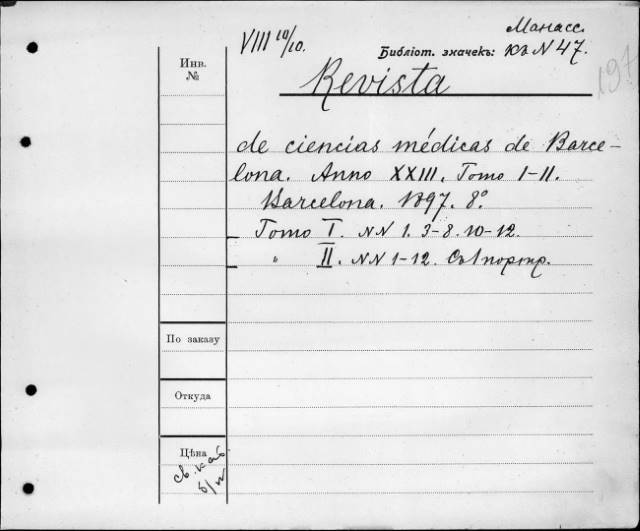 Манасс.
VIII 10/10. Библіот. значекъ: къ N 47.
197
Инв.
№
Revista
de ciencias médicas de Barce-
lona. Anno XXIII. Tomo I-II.
Barcelona. 1897. 8º.
Tomo I. NN 1. 3-8. 10-12.
" II. NN 1-12. Съ 1 портр.
По заказу
Откуда
Цѣна